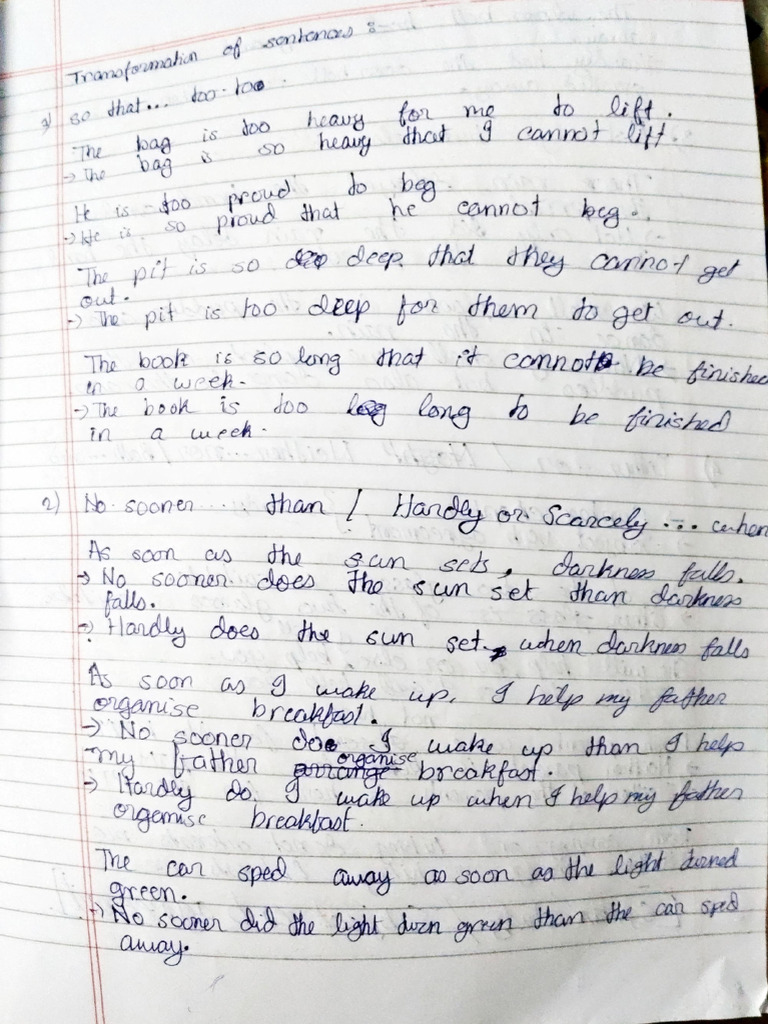 Transformation of sentences :
1) so that... too-too
The bag is too heavy for me to lift.
→ The bag is so heavy that I cannot lift.
He is too proud to beg.
→ He is so proud that he cannot beg.
The pit is so deep that they cannot get
out.
→ The pit is too deep for them to get out.
The book is so long that it cannot be finished
in a week.
→ The book is too long to be finished
in a week.
2) No sooner.... than / Hardly or Scarcely ... when
As soon as the sun sets, darkness falls.
→ No sooner does the sun set than darkness
falls.
→ Hardly does the sun set when darkness falls
As soon as I wake up, I help my father
organise breakfast.
→ No sooner do I wake up than I help
my father organise breakfast.
→ Hardly do I wake up when I help my father
orgamise breakfast.
The car sped away as soon as the light turned
green.
→ No sooner did the light turn green than the car sped
away.